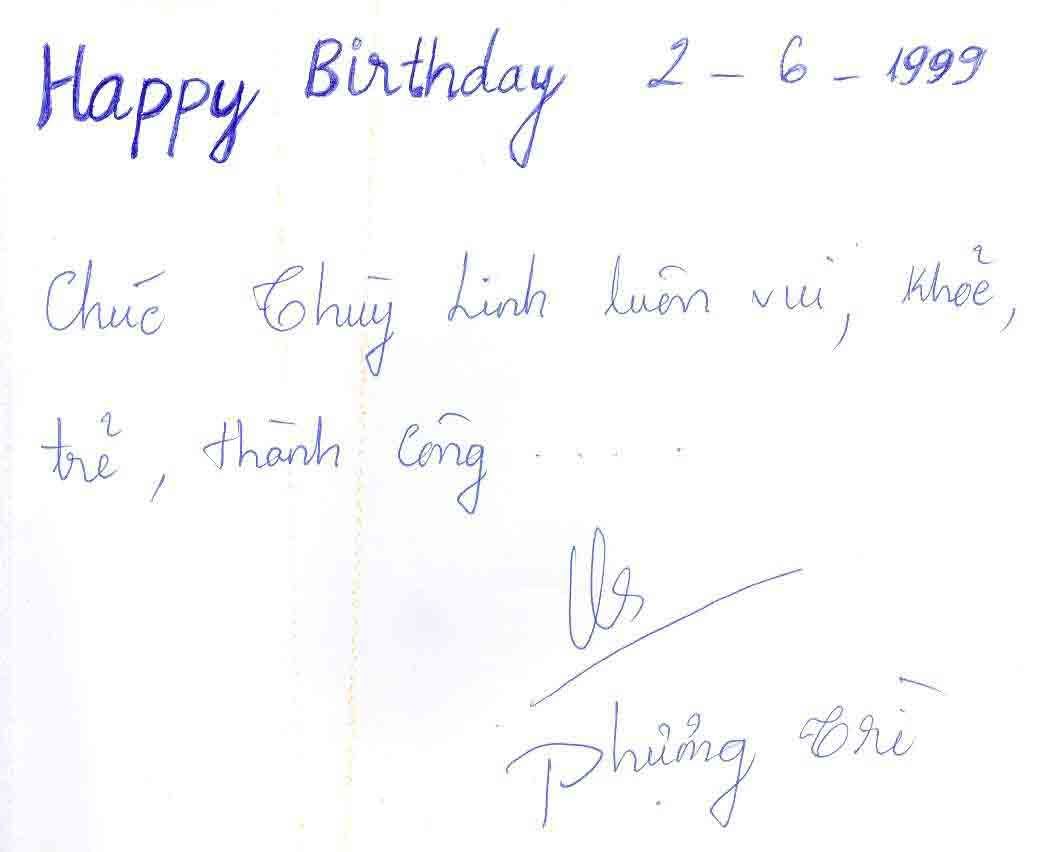 Happy Birthday 2 - 6 - 1999
Chúc Thùy Linh luôn vui, khoẻ,
trẻ, thành công .....
Phượng Trì